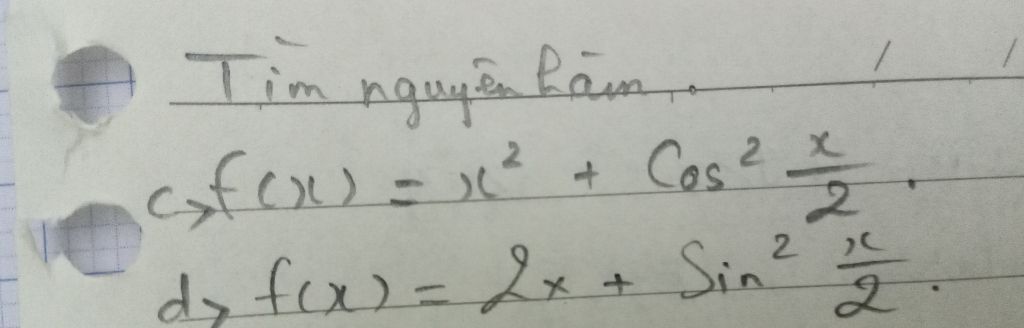 Tìm nguyên hàm.
c, f(x) = x² + Cos² x/2.
d, f(x) = 2x + Sin² x/2.